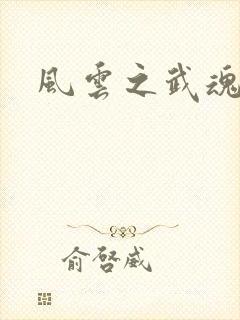 風雲之武魂
俞啓威